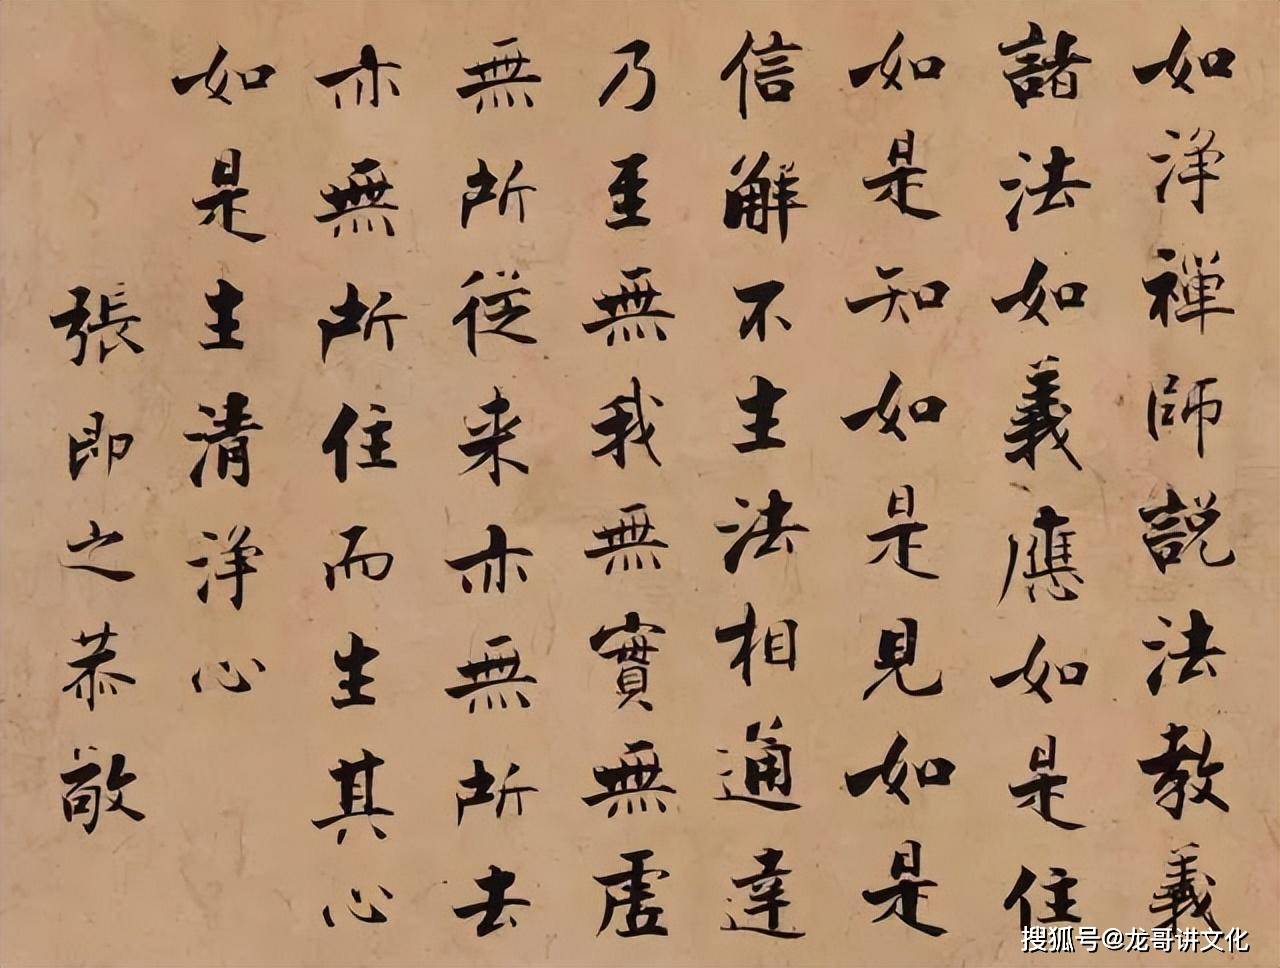 如淨禪師説法教義
諸法如義應如是住
如是知如是見如是
信解不主法相通達
乃至無我無實無虛
無所從来亦無所去
亦無所住而生其心
如是主清淨心
張即之恭敬
搜狐号@龙哥讲文化